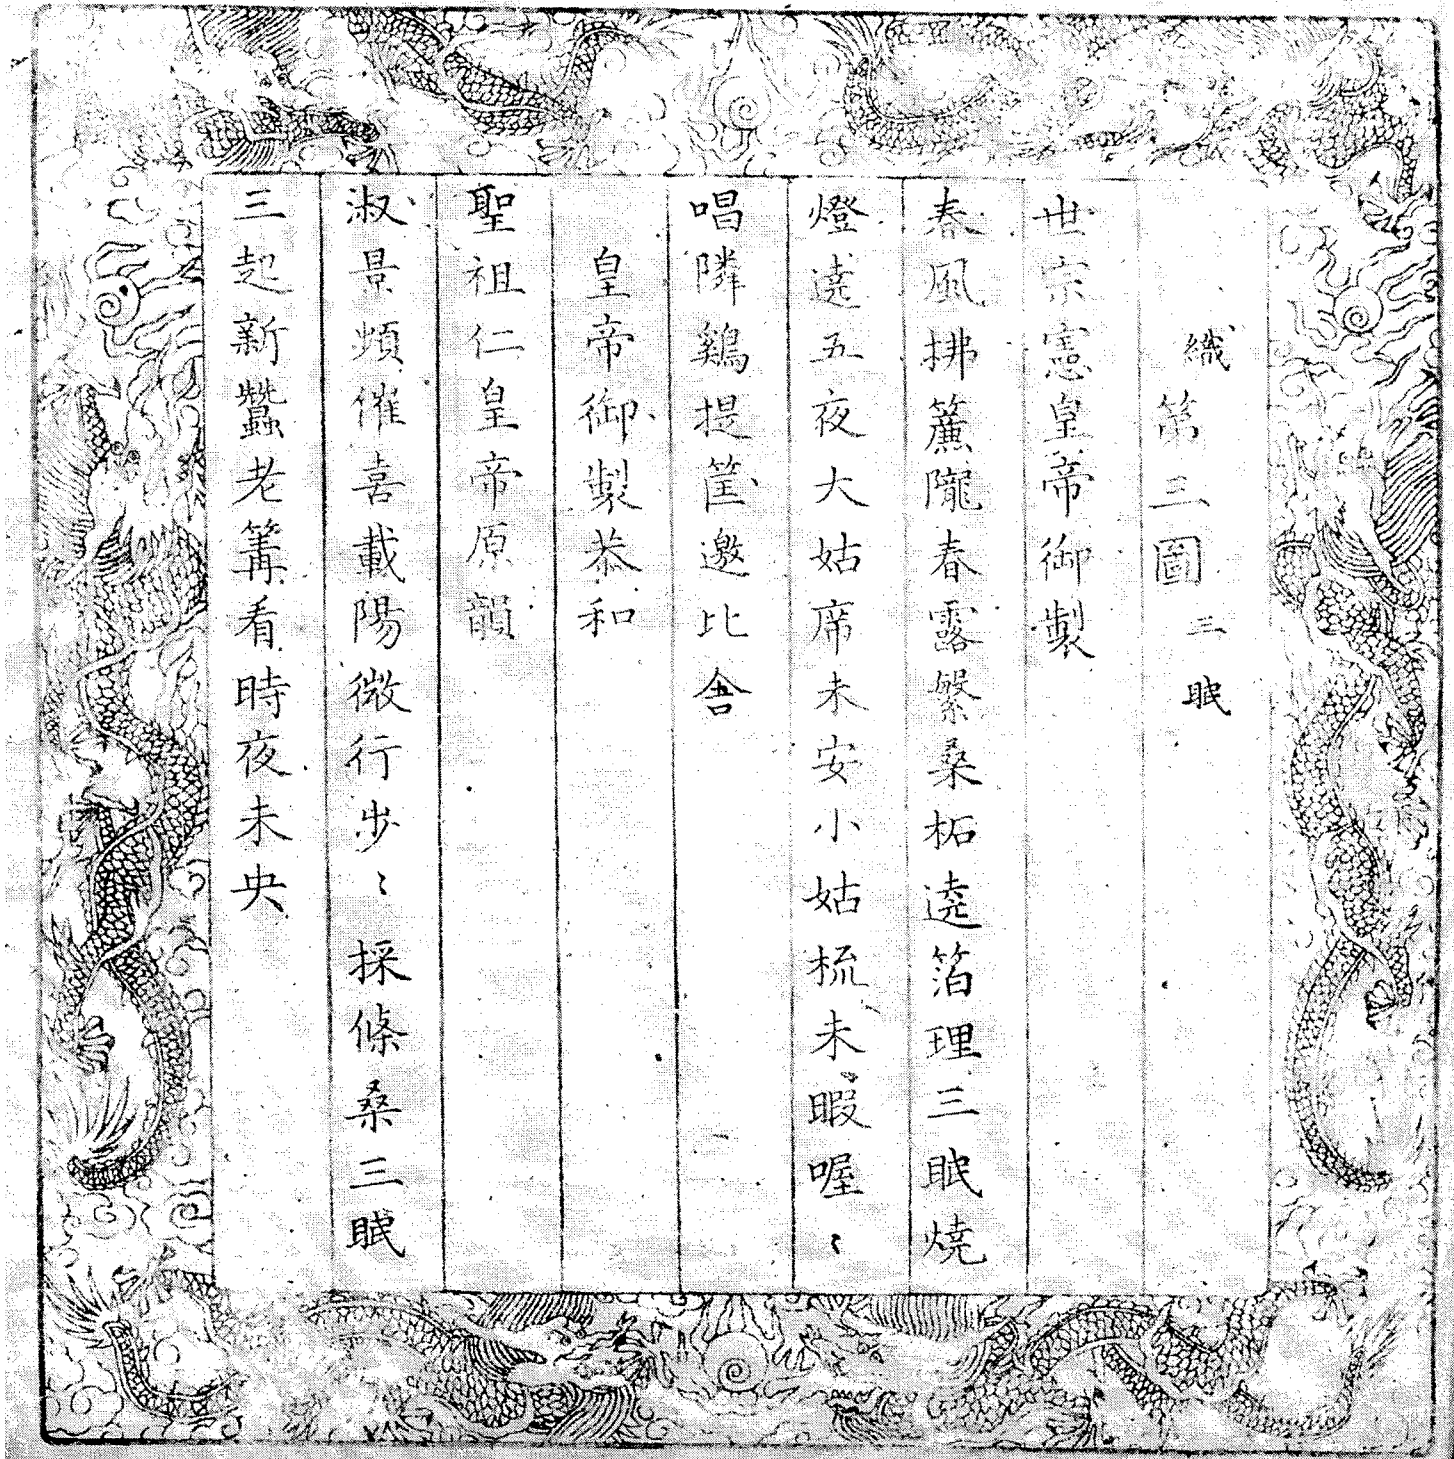 織第三圖 三眠
世宗憲皇帝御製
春風拂簾隴春露繁桑柘遶箔理三眠燒
燈遶五夜大姑席未安小姑梳未暇喔〻
唱隣鷄提筐邀比舍
皇帝御製恭和
聖祖仁皇帝原韻
淑景頻催喜載陽微行步〻採條桑三眠
三起新蠶老篝看時夜未央